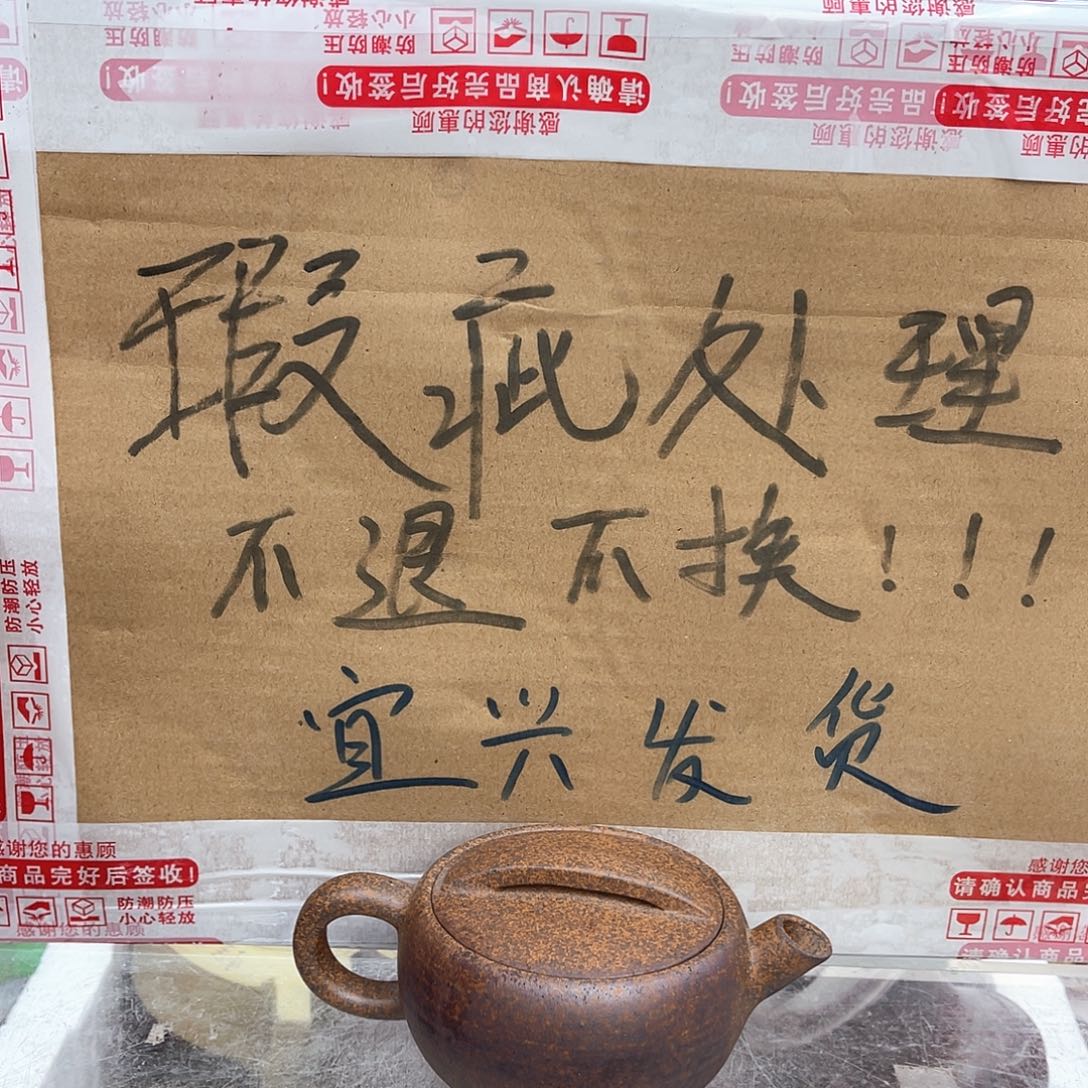 小心轻放
防潮防压
请确认商品完好后签收!
感谢您的惠顾
瑕疵处理
不退不换!!!
宜兴发货
防潮防压
小心轻放
感谢您的惠顾
商品完好后签收!
防潮防压
小心轻放
感谢您的惠顾
请确认商品